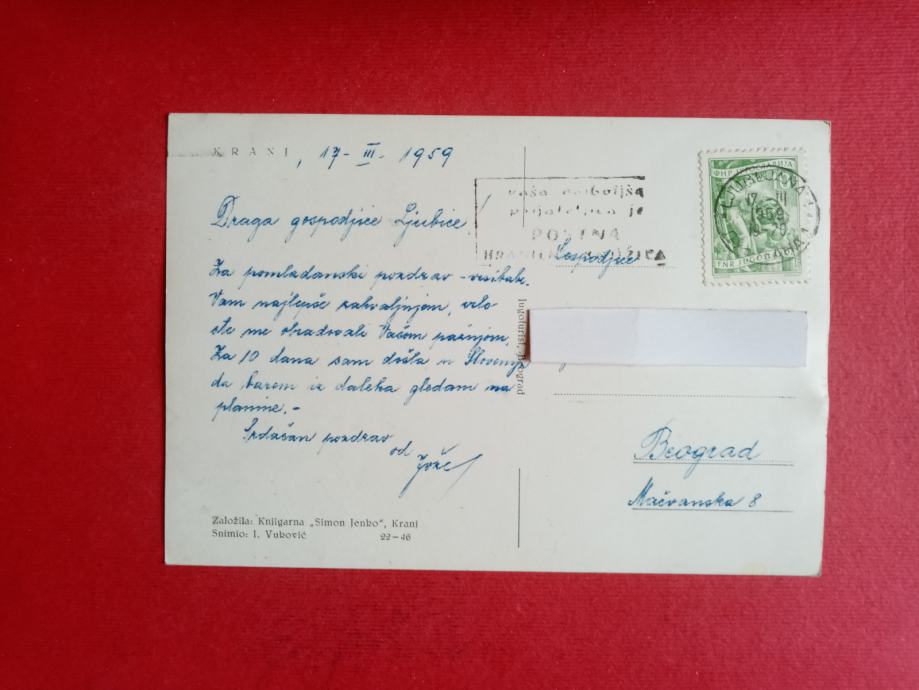 KRANJ, 17-III-1959
Draga gospodjice Ljubice!
Za pomladanski pozdrav - vizitke
Vam najlepše zahvaljujem, vrlo
ste me obradovali Vašom pažnjom.
Za 10 dana sam došla u Sloveniju
da barem iz daleka gledam na
planine.-
Srdačan pozdrav
od
Založila: Knjigarna „Simon Jenko", Kranj
Snimio: I. Vuković 22-46
Jugoturist, Beograd
vaša najboljša
prijateljica je
POŠTNA
HRANILNA KNJIŽICA
ФНР ЈУГОСЛАВИЈА
FNR JUGOSLAVIJA
LJUBLJANA
17 III
1959
Gospodjice
Beograd
Mačvanska 8